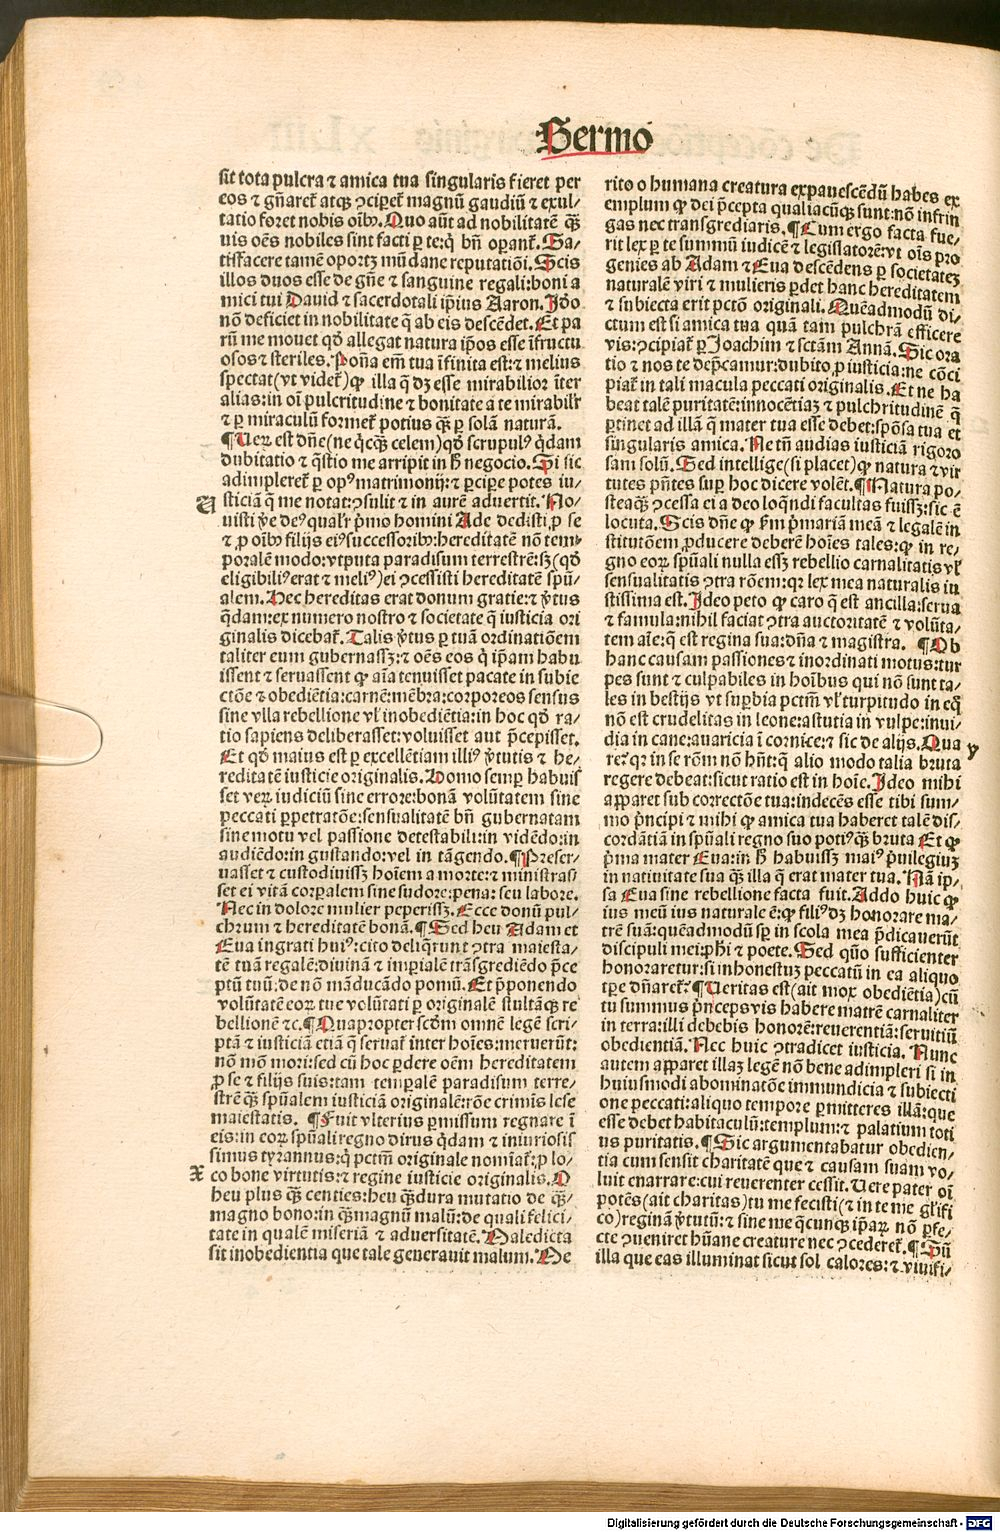 Sermo
sit tota pulcra ⁊ amica tua singularis fieret per
eos ⁊ gñaret̃ atq̃ꝫ ꝯciꝑet̃ magnũ gaudiũ ⁊ exul⸗
tatio foret nobis oĩbꝰ. Quo aũt ad nobilitatẽ q̃ꝫ
uis oẽs nobiles sint facti ꝑ te: q̇ bñ oꝑant̃. Sa⸗
tisfacere tamẽ oportꝫ mũdane reputatiõi. Scis
illos duos esse de gñe ⁊ sanguine regali: boni a
mici tui Dauid ⁊ sacerdotali ip̃ius Aaron. Iõo
nõ deficiet in nobilitate q̃ ab eis descẽdet. Et pa
rũ me mouet qđ allegat natura ip̃os esse ĩfructu
osos ⁊ steriles. Poña em̃ tua ĩfinita est: ⁊ melius
spectat (vt videt̃) ꝙ illa q̃ dꝫ esse mirabilior ĩter
alias: in oĩ pulcritudine ⁊ bonitate a te mirabilr̃
⁊ ꝑ miraculũ formet̃ potius q̃ꝫ ꝑ solã naturã.
¶ Uerꝫ est dñe (ne q̇cq̃ꝫ celem) qđ scrupulꝰ q̇dam
dubitatio ⁊ q̃stio me arripit in h̃ negocio. Si sic
adimpleret̃ ꝑ opꝰ matrimonij: ⁊ ꝑciꝑe potes iu⸗
U sticiã q̃ me notat: ꝯsulit ⁊ in aurẽ aduertit. No⸗
uisti ṽe deꝰ qualr̃ p̃mo homini Ade dedisti ꝓ se
⁊ ꝓ oĩbꝰ filijs eiꝰ successoribꝰ: hereditatẽ nõ tem⸗
poralẽ modo: vtputa paradisum terrestrẽ: sꝫ (qđ
eligibiliꝰ erat ⁊ meliꝰ) ei ꝯcessisti hereditatẽ spũ⸗
alem. Hec hereditas erat donum gratie: ⁊ ṽtus
q̃dam: ex numero nostro ⁊ societate q̃ iusticia ori
ginalis dicebat̃. Talis ṽtus ꝑ tuã ordinatiõem
taliter eum gubernassꝫ: ⁊ oẽs eos q̇ ip̃am habu
issent ⁊ seruassent ꝙ aĩa tenuisset pacate in subie
ctõe ⁊ obediẽtia: carnẽ: mẽbra: corporeos sensus
sine vlla rebellione vl̃ inobediẽtia: in hoc qđ ra⸗
tio sapiens deliberasset: voluisset aut p̃cepisset.
Et qđ maius est ꝑ excellẽtiam illiꝰ ṽtutis ⁊ he⸗
reditatẽ iusticie originalis. Homo semꝑ habuis
set verꝫ iudiciũ sine errore: bonã volũtatem sine
peccati ꝑpetratõe: sensualitatẽ bñ gubernatam
sine motu vel passione detestabili: in vidẽdo: in
audiẽdo: in gustando: vel in tãgendo. ¶ Preser⸗
uasset ⁊ custodiuissꝫ hoĩem a morte: ⁊ ministras
set ei vitã corꝑalem sine sudore: pena: seu labore.
Nec in dolore mulier peperissꝫ. Ecce donũ pul⸗
chrum ⁊ hereditatẽ bonã. ¶ Sed heu Adam et
Eua ingrati huiꝰ: cito deliq̃runt ꝯtra maiesta⸗
tẽ tuã regalẽ: diuinã ⁊ imꝑialẽ trãsgrediẽdo p̃ce
ptũ tuũ: de nõ mãducãdo pomũ. Et p̃ponendo
volũtatẽ eorꝫ tue volũtati ꝑ originalẽ stultãq̃ꝫ re
bellionẽ ⁊c. ¶ Quapropter scđm omnẽ legẽ scri⸗
ptã ⁊ iusticiã etiã q̃ seruat̃ inter hoĩes: meruerũt:
nõ mõ mori: sed cũ hoc ꝑdere oẽm hereditatem
ꝓ se ⁊ filijs suis: tam temꝑalẽ paradisum terre⸗
strẽ q̃ꝫ spũalem iusticiã originalẽ: rõe crimĩs lese
maiestatis. ¶ Fuit vlterius ꝑmissum regnare ĩ
eis: in eorꝫ spũali regno dirus q̇dam ⁊ iniuriosis
simus tyrannus: q̇ pctm̃ originale nomĩat̃: ꝓ lo⸗
X co bone virtutis: ⁊ regine iusticie originalis. O
heu plus q̃ꝫ centies: heu q̃ꝫdura mutatio de q̃ꝫ⸗
magno bono: in q̃ꝫmagnũ malũ: de quali felici⸗
tate in qualẽ miseriã ⁊ aduersitatẽ. Maledicta
sit inobedientia que tale generauit malum. Me
rito o humana creatura expauescẽdũ habes ex
emplum ꝙ dei p̃cepta qualiacũq̃ꝫ sunt: nõ infrin
gas nec transgrediaris. ¶ Cum ergo facta fue⸗
rit lex ꝑ te summũ iudicẽ ⁊ legislatorẽ: vt oĩs pro
genies ab Adam ⁊ Eua descẽdens ꝑ societatẽ
naturalẽ viri ⁊ mulieris ꝑdet hanc hereditatem
⁊ subiecta erit pctõ originali. Quẽadmodũ di⸗
ctum est si amica tua quã tam pulchrã efficere
vis: ꝯcipiat̃ ꝑ Joachim ⁊ sctãm Annã. Sic ora
tio ⁊ nos te dep̃camur: dubito ꝓ iusticia: ne cõci
piat̃ in tali macula peccati originalis. Et ne ha
beat talẽ puritatẽ: innocẽtiaꝫ ⁊ pulchritudinẽ q̃
ꝑtinet ad illã q̃ mater tua esse debet: spõsa tua et
singularis amica. Ne tñ audias iusticiã rigoro
sam solũ. Sed intellige (si placet) ꝙ natura ⁊ vir
tutes p̃ntes suꝑ hoc dicere volẽt. ¶ Natura po⸗
steaq̃ꝫ ꝯcessa ei a deo loq̃ndi facultas fuissꝫ: sic ẽ
locuta. Scis dñe ꝙ ẜm p̃mariã meã ⁊ legalẽ in
stitutõem ꝓducere deberẽ hoĩes tales: ꝙ in re⸗
gno eorꝫ spũali nulla essꝫ rebellio carnalitatis vl̃
sensualitatis ꝯtra rõem: qꝛ lex mea naturalis iu
stissima est. Ideo peto ꝙ caro q̃ est ancilla: serua
⁊ famula: nihil faciat ꝯtra auctoritatẽ ⁊ volũta⸗
tem aĩe: q̃ est regina sua: dñã ⁊ magistra. ¶ Ob
hanc causam passiones ⁊ inordinati motus: tur
pes sunt ⁊ culpabiles in hoĩbus qui nõ sunt ta⸗
les in bestijs vt suꝑbia pctm̃ vl̃ turpitudo in eq̃
nõ est crudelitas in leone: astutia in vulpe: inui⸗
dia in cane: auaricia ĩ cornice: ⁊ sic de alijs. Qua y
re? qꝛ in se rõm nõ hñt: q̃ alio modo talia bruta
regere debeat: sicut ratio est in hoĩe. Ideo mihi
apparet sub correctõe tua: indecẽs esse tibi sum⸗
mo p̃ncipi ⁊ mihi ꝙ amica tua haberet talẽ dis⸗
cordãtiã in spũali regno suo potiꝰq̃ꝫ bruta Et ꝙ
p̃ma mater Eua: in h̃ habuissꝫ maiꝰ p̃uilegiuꝫ
in natiuitate sua q̃ꝫ illa q̃ erat mater tua. Nã ip⸗
sa Eua sine rebellione facta fuit. Addo huic ꝙ
ius meũ ius naturale ẽ: ꝙ filiꝰ dꝫ honorare ma⸗
trẽ suã: quẽadmodũ sꝑ in scola mea p̃dicauerũt
discipuli mei: ph̃i ⁊ poete. Sed quõ sufficienter
honoraretur: si inhonestuꝫ peccatũ in ea aliquo
tꝑe dñaret̃? ¶ Ueritas est (ait mox obediẽtia) cũ
tu summus p̃nceps vis habere matrẽ carnaliter
in terra: illi debebis honorẽ: reuerentiã: seruitiũ
obedientiã. Nec huic ꝯtradicet iusticia. Nunc
autem apparet illaꝫ legẽ nõ bene adimpleri si in
huiusmodi abominatõe immundicia ⁊ subiecti
one peccati: aliquo tempore ꝑmitteres illã: que
esse debet habitaculũ: templum: ⁊ palatium toti
us puritatis. ¶ Sic argumentabatur obedien⸗
tia cum sensit charitatẽ que ⁊ causam suam vo⸗
luit enarrare: cui reuerenter cessit. Uere pater oĩ
potẽs (ait charitas) tu me fecisti (⁊ in te me gl̃ifi
co) reginã ṽtutũ: ⁊ sine me q̃cunq̃ꝫ ip̃arꝫ nõ ꝑfe⸗
cte ꝯueniret hũane creature nec ꝯcederet̃. ¶ Sũ
illa que eas illuminat sicut sol calores: ⁊ viuifi⸗
Digitalisierung gefördert durch die Deutsche Forschungsgemeinschaft - DFG